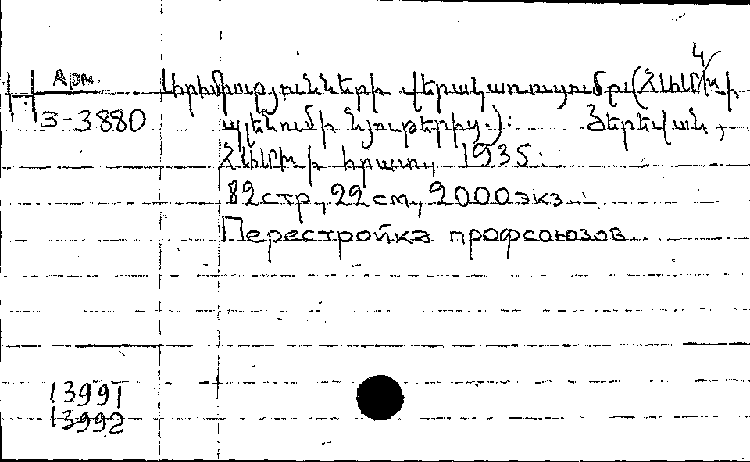 Арм.
3-3880
Միությունների վերակառուցումը (ՀԱՄԿԽ-ի
պլենումի նյութերից): Յերեվան,
1935.
82стр., 22см., 2000экз.
Перестройка профсоюзов
13991
13992